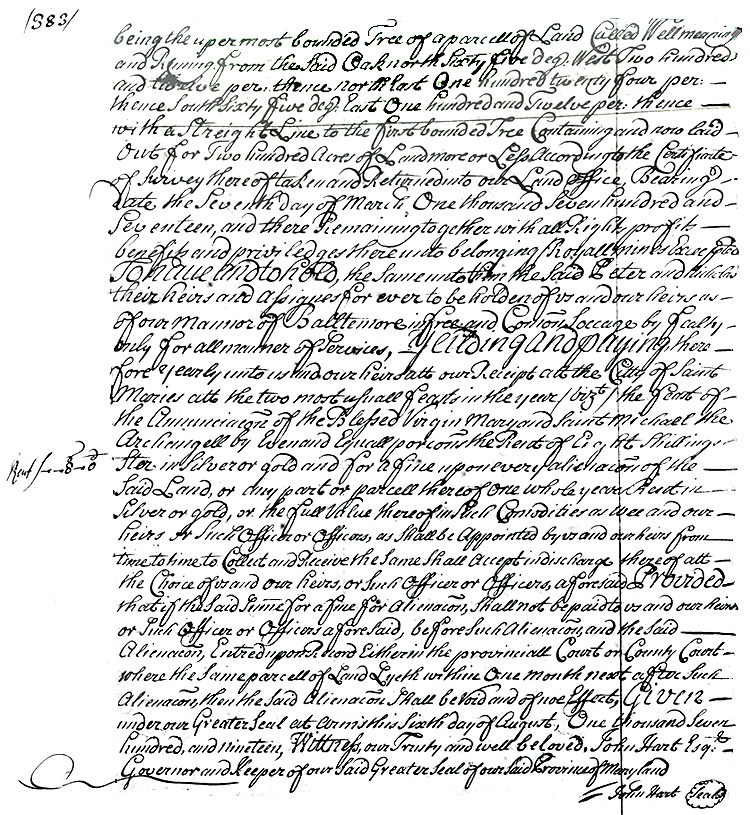 /383/
being the upermost bounded Tree of a parcell of Land Called Wellmeaning
and Runing from the Said Oak north Sixty five deg: West Two hundred
and twelve per: thence north East One hundred twenty four per: —
thence South Sixty five deg: East One hundred and Twelve per: thence —
with a Streight Line to the first bounded Tree Containing and now laid —
Out for Two hundred Acres of Land more or Less According to the Certificate
of Survey thereof taken and Returned into our Land office Bearing —
date the Seventh day of March, One thousand Seven hundred and —
Seventeen, and there Remaining together with all Right, profits —
benefits and priviledges thereunto belonging (Royall mines Excepted
To have and to hold, the Same unto them the Said Peter and
their heirs and assignes for ever to be holden of us and our heirs as —
of our Mannor of Balltemore in free and Comon Soccage by fealty —
only for all manner of Services, Yeilding and paying there
fore yearly unto us and our heirs att our Receipt att the Citty of Saint
Maries att the two most usuall feasts in the year /vizt/ the feast of —
the Annunciacon of the Blessed Virgin Mary and Saint Michael the
Archangell by Even and Equall porcons the Rent of Eight Shillings
Rent £—8—0
Ster in Silver or gold and for a fine upon every alienacon of the —
Said Land, or any part or parcell thereof One whole years Rent in —
Silver or gold, or the full Value thereof in Such Comodities as wee and our —
heirs or Such Officer or Officers, as Shall be Appointed by us and our heirs from
time to time to Collect and Receive the Same Shall Accept in discharge thereof att —
the Choice of us and our heirs, or Such Officer or Officers, aforesaid Provided —
that if the Said Sume for a fine for Alienacon, Shall not be paid to us and our heirs
or Such Officer or Officers aforesaid, before Such Alienacon, and the Said —
Alienacon, Entred upon Record Either in the provinciall Court or County Court —
where the Same parcell of Land Lyeth within One month next after Such
Alienacon, then the Said Alienacon Shall be Void and of noe Effect, Given —
under our Greater Seal at Arms this Sixth day of August, One thousand Seven
hundred, and nineteen, Wittness, our Trusty and well beloved, John Hart Esqr. &
Governor and Keeper of our Said Greater Seal of our Said Province of Maryland
John Hart Seal